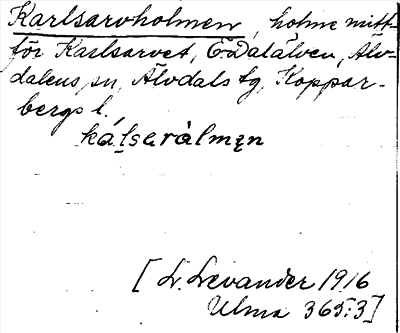 Karlsarvholmen, holme mitt-
för Karlsarvet, Ö. Dalälven, Älv-
dalens sn, Älvdals tg, Koppar-
bergs l.
ká̱lsaràlmęn
[L. Levander 1916
Ulma 365:3]